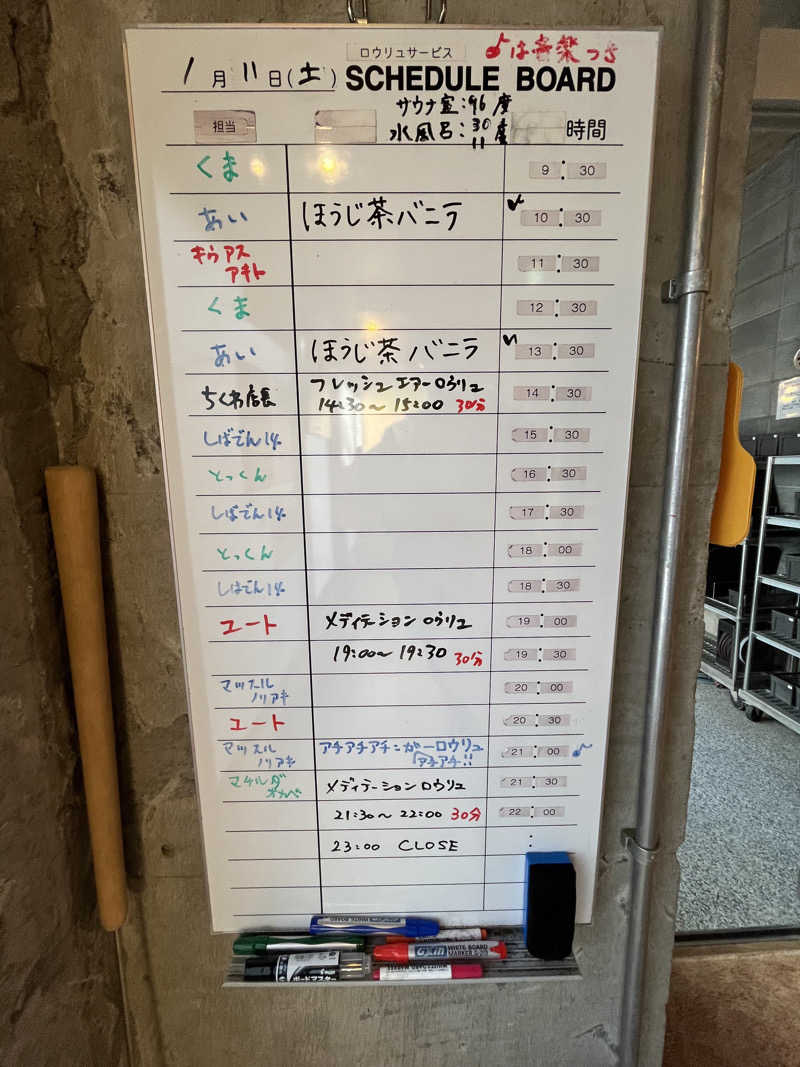 ロウリュサービス
♪は音楽つき
1月11日(土) SCHEDULE BOARD
サウナ室:96度
水風呂:30度
11
担当 時間
くま 9:30
あい ほうじ茶バニラ 10:30
キウアス
アキト 11:30
くま 12:30
あい ほうじ茶バニラ 13:30
ちくわ店長 フレッシュエアーロウリュ
14:30〜15:00 30分 14:30
しばでん14. 15:30
とっくん 16:30
しばでん14. 17:30
とっくん 18:00
しばでん14. 18:30
ユート メディテーションロウリュ 19:00
19:00〜19:30 30分 19:30
マッスル
ノリアキ 20:00
ユート 20:30
マッスル
ノリアキ アチアチアチ:がーロウリュ
アチアチ!! 21:00 ♪
マチルダ
オカベ メディテーションロウリュ 21:30
21:30〜22:00 30分 22:00
23:00 CLOSE :
WHITE BOARD
WHITE BOARD
MARKER
ボードマスター